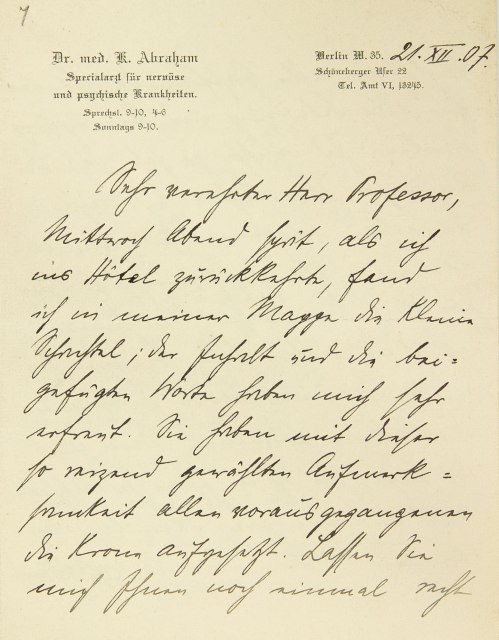 Dr. med. K. Abraham
Specialarzt für nervöse
und psychische Krankheiten.
Sprechst. 9-10, 4-6
Sonntags 9-10.
Berlin W. 35. 21. XII. 07.
Schöneberger Ufer 22
Tel. Amt VI, 13245.
Sehr verehrter Herr Professor,
Mittwoch Abend spät, als ich
ins Hôtel zurückkehrte, fand
ich in meiner Mappe die kleine
Schachtel; der Inhalt und die bei=
gefügten Worte haben mich sehr
erfreut. Sie haben mit dieser
so reizend gewählten Aufmerk=
samkeit allen vorausgegangenen
die Krone aufgesetzt. Lassen Sie
mich Ihnen noch einmal recht